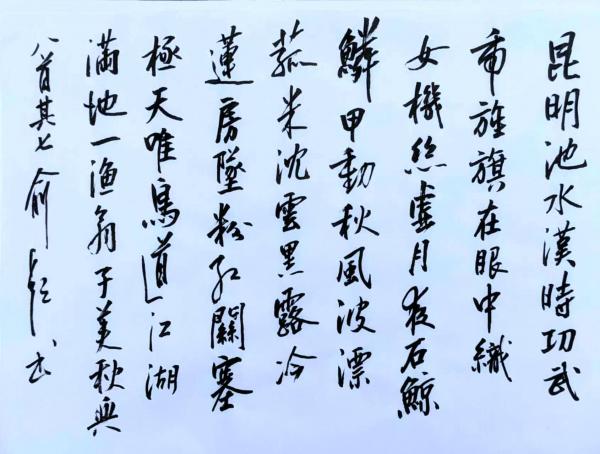 昆明池水漢時功武
帝旌旗在眼中織
女機絲虛月夜石鯨
鱗甲動秋風波漂
菰米沈雲黑露冷
蓮房墜粉紅關塞
極天唯鳥道江湖
滿地一漁翁子美秋興
八首其七俞书